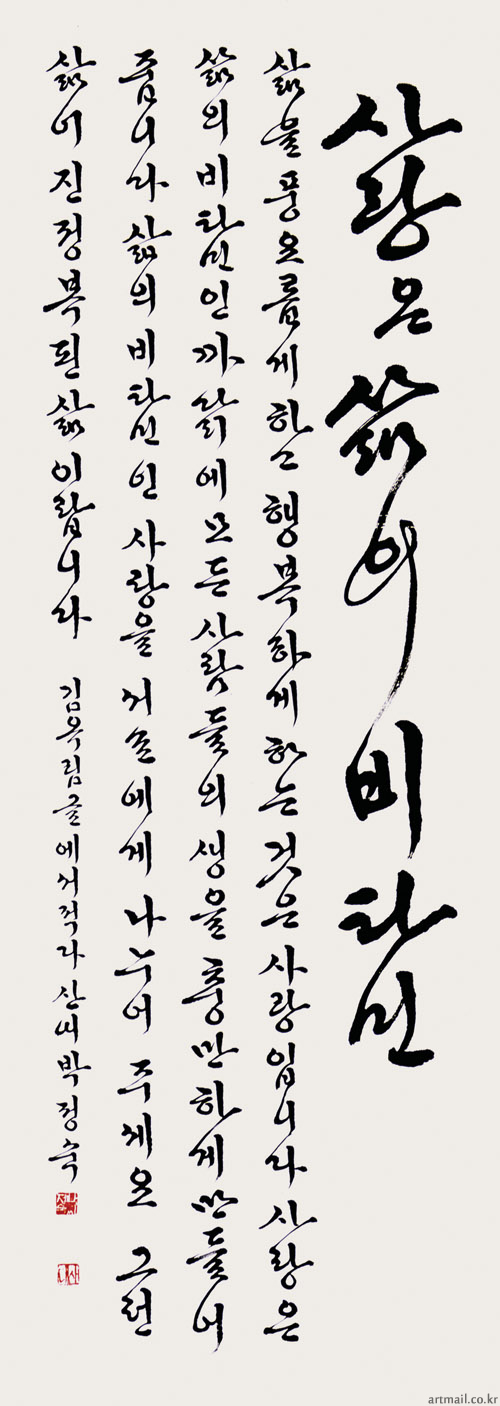 사랑은 삶의 비타민
삶을 풍요롭게 하고 행복하게 하는 것은 사랑입니다 사랑은
삶의 비타민인 까닭에 모든 사람들의 생을 충만하게 만들어
줍니다 삶의 비타민인 사랑을 서로에게 나누어 주세요 그런
삶이 진정 복된 삶이랍니다
김옥림 글에서 적다 산내 박정숙
artmail.co.kr